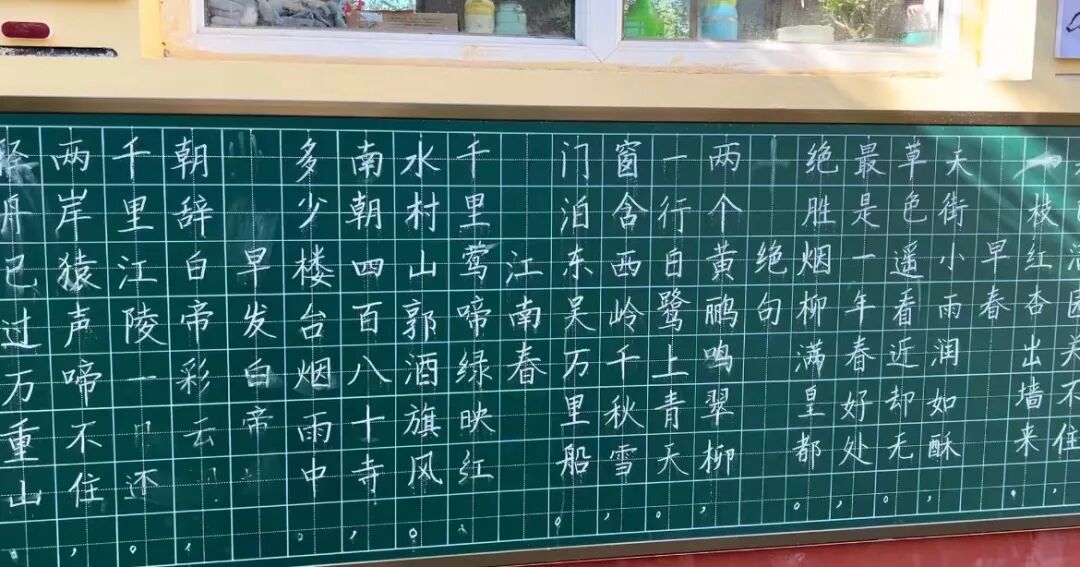 园关不住，
一枝红杏出墙来。
早春
天街小雨润如酥，
草色遥看近却无。
最是一年春好处，
绝胜烟柳满皇都。
绝句
两个黄鹂鸣翠柳，
一行白鹭上青天。
窗含西岭千秋雪，
门泊东吴万里船。
江南春
千里莺啼绿映红，
水村山郭酒旗风。
南朝四百八十寺，
多少楼台烟雨中。
早发白帝
朝辞白帝彩云，
千里江陵一日还。
两岸猿声啼不住，
舟已过万重山。